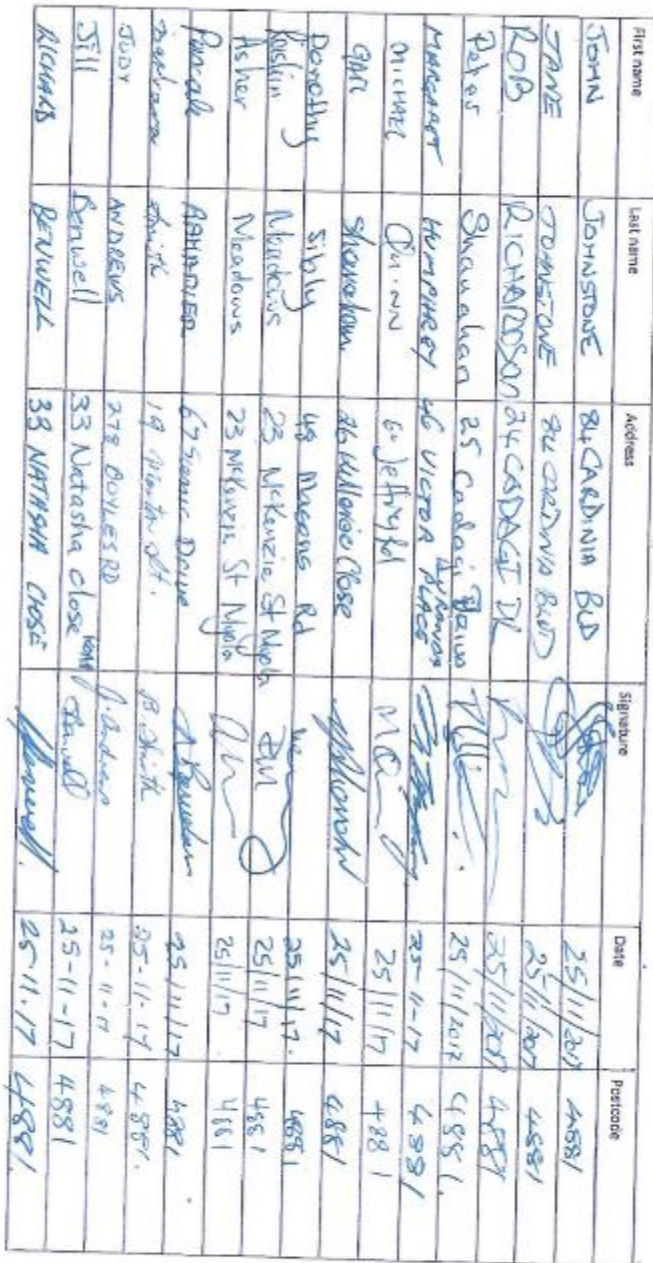 First name Last name Address Signature Date Postcode
JOHN JOHNSTONE 84 CARDINIA BLD 25/11/2017 4881
JANE JOHNSTONE 84 CARDINIA BLVD 25/11/2017 4881
ROB RICHARDSON 24 CADAGI DR 25/11/2017 4881
Peter Shanahan 25 Cadagi Drive 25/11/2017 4881.
MARGARET HUMPHREY 46 VICTOR PLACE KURANDA 25-11-17 4881
MICHAEL QUINN 25/11/17 4881
GAIL Shanahan 25/11/17 4881
Dorothy Sibly Rd 25/11/17. 4881
Meadows 23 McKenzie St Myola 25/11/17 4881
Asher Meadows 23 McKenzie St Myola 25/11/17 4881
67 Drive 25/11/17 4881
Smith 19 St. B. Smith 25-11-17 4881.
JUDY ANDREWS 278 BOYLES RD J. Andrews 25-11-17 4881
Jill Benwell 33 Natasha Close 25-11-17 4881
RICHARD BENWELL 33 NATASHA CLOSE 25.11.17 4881.